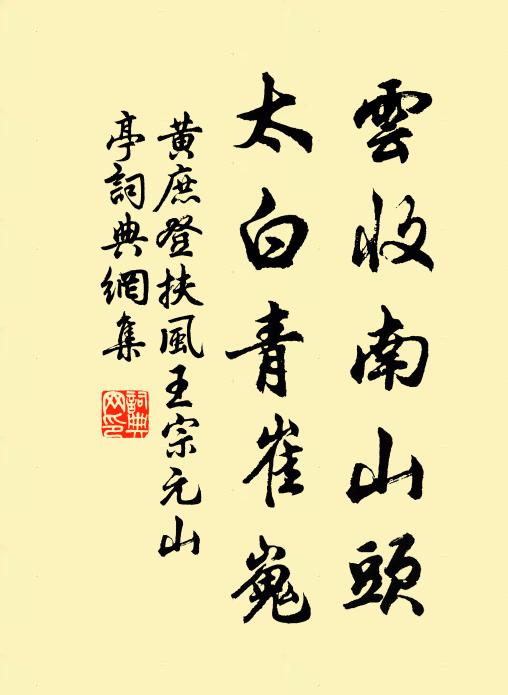 雲收南山頭
太白青崔嵬
黄庶登扶風王宗元山
亭詞典網集
詞典
网印